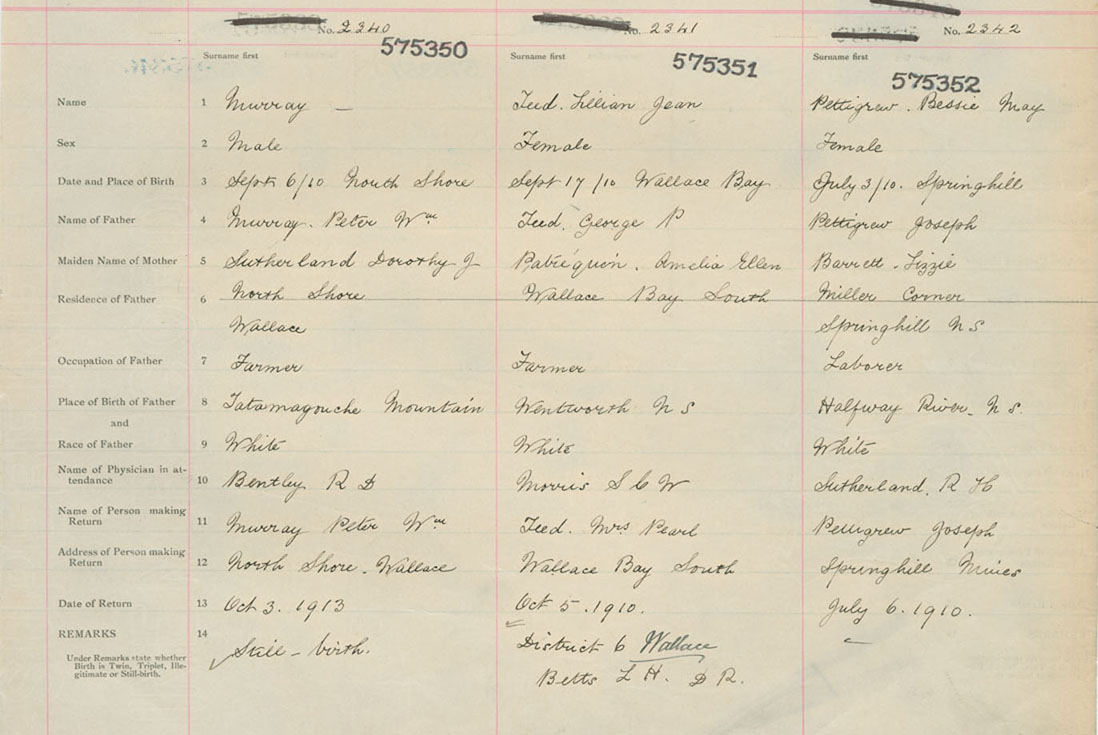 No. 2340 No. 2341 No. 2342
575350 575351 575352
Surname first Surname first Surname first
Name 1 Murray — Teed. Lillian Jean Pettigrew. Bessie May
Sex 2 Male Female Female
Date and Place of Birth 3 Sept 6/10 North Shore Sept 17/10 Wallace Bay July 3/10. Springhill
Name of Father 4 Murray. Peter Wm Teed. George P Pettigrew Joseph
Maiden Name of Mother 5 Sutherland Dorothy J Patriquin. Amelia Ellen Barrett. Lizzie
Residence of Father 6 North Shore Wallace Bay South Miller Corner
Wallace Springhill N S
Occupation of Father 7 Farmer Farmer Laborer
Place of Birth of Father 8 Tatamagouche Mountain Wentworth N S Halfway River. N S.
and
Race of Father 9 White White White
Name of Physician in at-
tendance 10 Bentley R D Morris S C W Sutherland. R H
Name of Person making
Return 11 Murray Peter Wm Teed. Mrs Pearl Pettigrew Joseph
Address of Person making
Return 12 North Shore. Wallace Wallace Bay South Springhill Mines
Date of Return 13 Oct 3. 1913 Oct 5. 1910. July 6. 1910.
REMARKS 14 Still - birth. District 6 Wallace
Under Remarks state whether
Birth is Twin, Triplet, Ille-
gitimate or Still-birth.
Betts L H. D R.